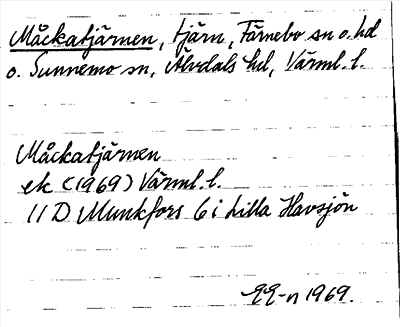 Måckatjärnen, tjärn, Färnebo sn o. hd
o. Sunnemo sn, Älvdals hd, Värml. l.
Måckatjärnen
ek (1969) Värml. l.
11 D Munkfors 6 i Lilla Havsjön
1969.